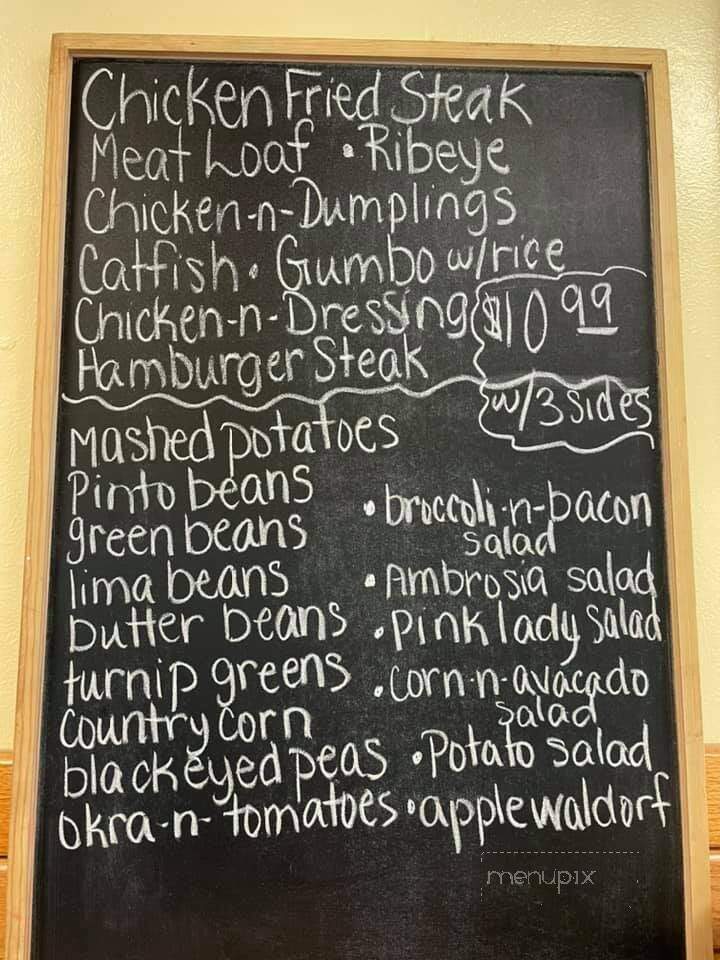 Chicken Fried Steak
Meat Loaf • Ribeye
Chicken-n-Dumplings
Catfish • Gumbo w/rice
Chicken-n-Dressing
$10 99
Hamburger Steak
w/3 sides
Mashed potatoes
Pinto beans
green beans
lima beans
butter beans
turnip greens
country corn
blackeyed peas
okra-n-tomatoes
• broccoli-n-bacon
salad
• Ambrosia salad
• Pink lady salad
• corn-n-avacado
salad
• Potato salad
• apple waldorf
menupix